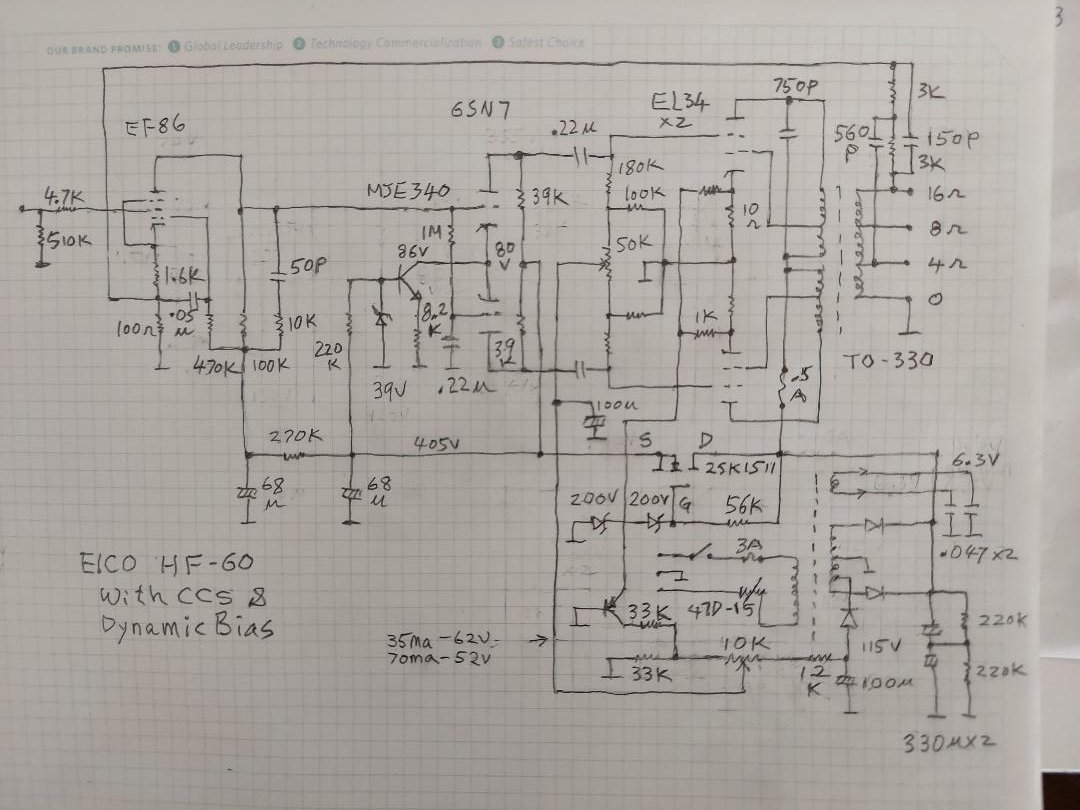 3
OUR BRAND PROMISE: 1 Global Leadership 2 Technology Commercialization 3 Safest Choice
EF86
6SN7
EL34
x2
750P
3K
560
P
150P
3K
.22μ
4.7K
MJE340
39K
180K
100K
10
Ω
16Ω
510K
1M
86V
80
V
50K
8Ω
1.6K
50P
4Ω
.05
μ
8.2
K
0
100Ω
10K
1K
220
K
39
Ω
470K
100K
39V
.22μ
TO-330
.5
A
100μ
270K
405V
S
D
2SK1511
6.3V
68
μ
68
μ
200V
200V
G
56K
3A
.047x2
EICO HF-60
With CCS &
Dynamic Bias
33K
47D-15
220K
35ma-62V
70ma-52V
10K
115V
33K
12
K
100μ
220K
330μx2